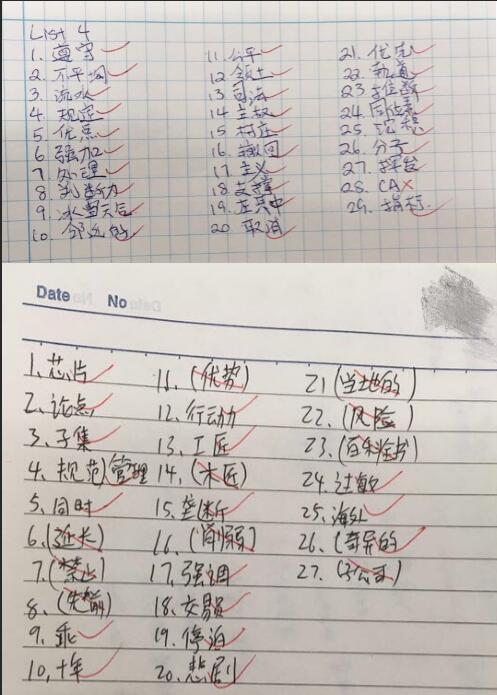 List 4
1. 遵守
2. 不平均
3. 流水
4. 规定
5. 优点
6. 强加
7. 处理
8. 判断力
9. 冰雪天气
10. 邻近的
11. 公平
12. 领土
13. 司法
14. 主权
15. 村庄
16. 撤回
17. 主义
18. 支撑
19. 在其中
20. 取消
21. 优先
22. 轨道
24. 同位素
25. 沉思
26. 分子
27. 挥发
28. CA
Date No
1、芯片
2、论点
3、子集
4、规范 管理
5、同时
6、(延长)
7、(禁止)
8、(先前)
9、乘
10、十年
11、(优势)
12、行动力
13、工匠
14、(木匠)
15、垄断
16、(削弱)
17、强调
18、交易员
19、停泊
20、悲剧
21、(当地的)
22、(风险)
23、(百科全书)
24、过敏
25、海外
26、(奇异的)
27、(子公司)